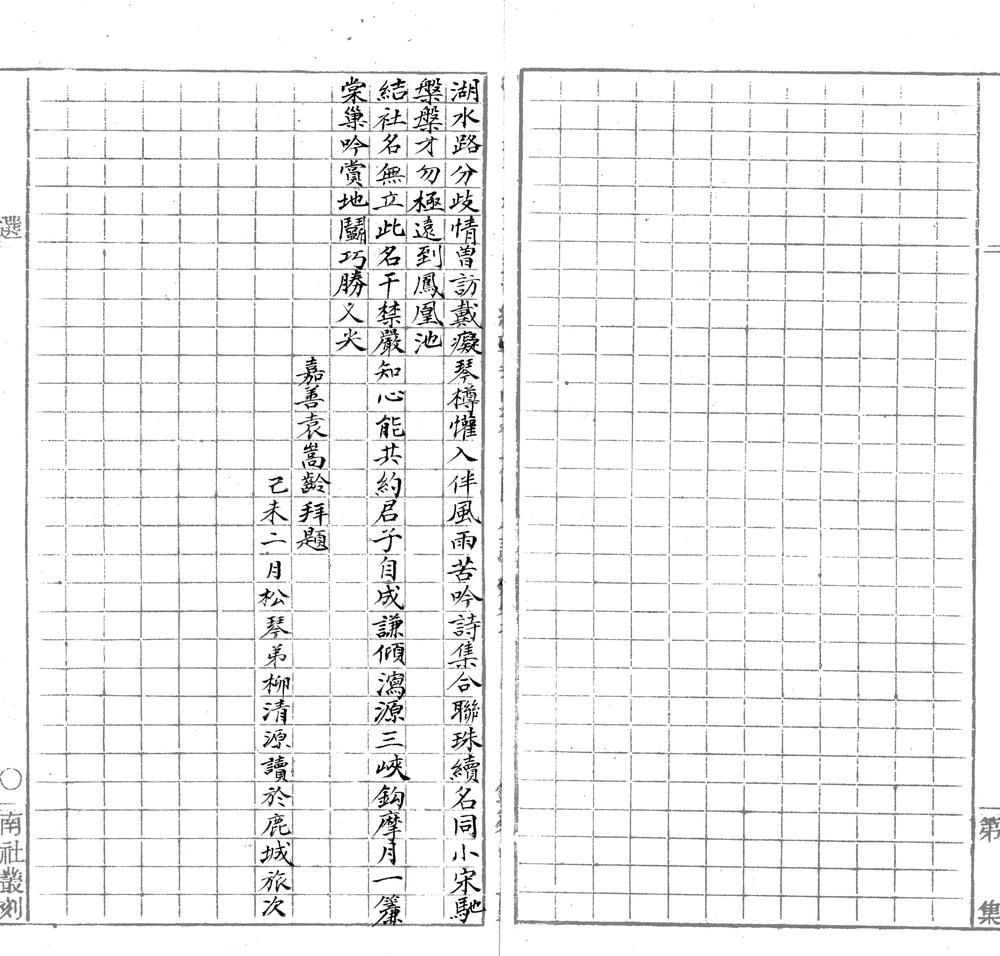 湖水路分歧情曾訪戴癡琴樽懽入伴風雨苦吟詩集合聯珠續名同小宋馳
槃槃才勿極遠到鳳凰池
結社名無立此名干禁嚴知心能共約君子自成謙傾瀉源三峽鈎摩月一簾
棠巢吟賞地鬬巧勝义尖
嘉善袁嵩齡拜題
己未二月松琴弟柳清源讀於鹿城旅次
選
〇南社叢刻
一
第
集